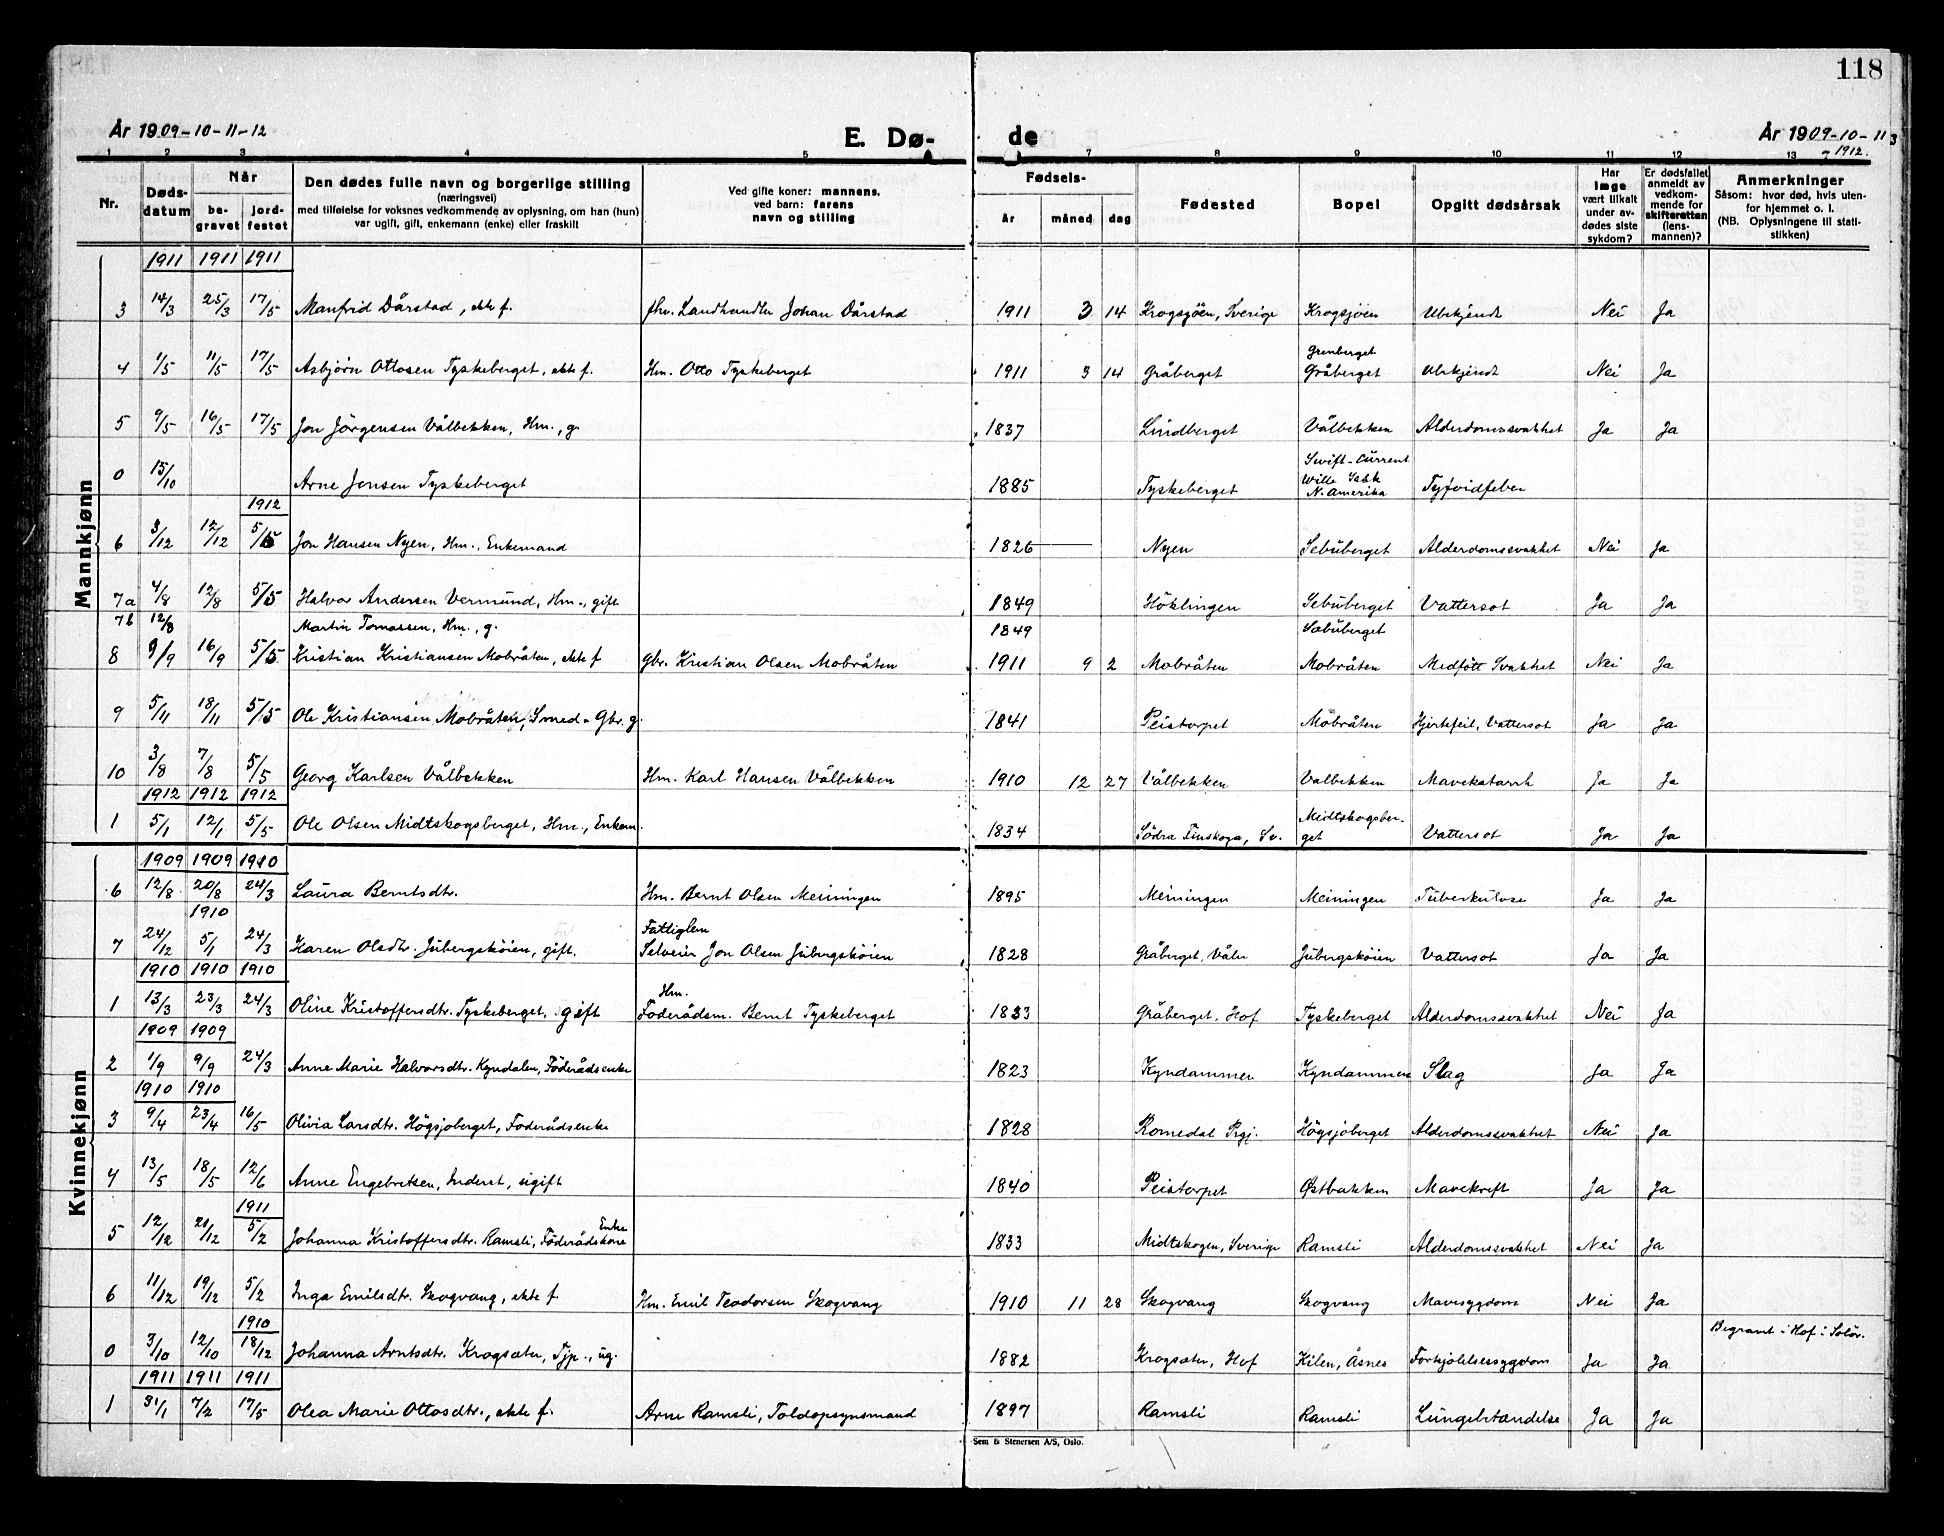 118
År 1909-10-11-12
E. Dø-
de
År 1909-10-11
1912.
1 2 3 4 5 7 8 9 10 11 12 13
Nr.
Døds-
datum
Når
be-
gravet
jord-
festet
Den dødes fulle navn og borgerlige stilling
(næringsvei)
med tilføielse for voksnes vedkommende av oplysning, om han (hun)
var ugift, gift, enkemann (enke) eller fraskilt
Ved gifte koner: mannens,
ved barn: farens
navn og stilling
Fødsels-
år måned dag
Fødested
Bopel
Opgitt dødsårsak
Har
læge
vært tilkalt
under av-
dødes siste
sykdom?
Er dødsfallet
anmeldt av
vedkom-
mende for
skifteretten
(lens-
mannen)?
Anmerkninger
Såsom: hvor død, hvis uten-
for hjemmet o. l.
(NB. Oplysningene til stati-
stikken)
Mannkjønn
1911 1911 1911
3 14/3 25/3 17/5 Manfrid Dårstad, ekte f. fhv. Landhandler Johan Dårstad 1911 3 14 Krogsjöen, Sverige Krogsjöen Ubekjendt Nei Ja
Grenberget
4 1/5 11/5 17/5 Asbjørn Ottosen Tyskeberget, ekte f. Hm. Otto Tyskeberget 1911 3 14 Gråberget Gråberget Ubekjendt Nei Ja
5 9/5 16/5 17/5 Jon Jörgensen Vålbekken, Hm., g. 1837 Lindberget Vålbekken Alderdomssvakhet Ja Ja
Swift-Current
0 15/10 Arne Jensen Tyskeberget 1885 Tyskeberget Wille Sask N. Amerika Tyfoidfeber
1912
6 3/12 12/12 5/5 Jon Hansen Nyen, Hm., Enkemand 1826 Nyen Sebuberget Alderdomssvakhet Nei Ja
7a 4/8 12/8 5/5 Halvor Andersen Vermund, Hm., gift 1849 Höklingen Sebuberget Vattersot Ja Ja
7b 12/8 Martin Tomassen, Hm., g. 1849 Sæbuberget
8 9/9 16/9 5/5 Kristian Kristiansen Mobråten, ekte f Gbr. Kristian Olsen Mobråten 1911 9 2 Mobråten Mobråten Medfött Svakhet Nei Ja
9 5/11 18/11 5/5 Ole Kristiansen Mobråten, Smed - Gbr. g. 1841 Peistorpet Mobråten Hjertefeil, Vattersot Ja Ja
10 3/8 7/8 5/5 Georg Karlsen Vålbekken Hm. Karl Hansen Vålbekken 1910 12 27 Vålbekken Valbekken Mavekatarrh Ja Ja
1912 1912 1912
1 5/1 12/1 5/5 Ole Olsen Midtskogsberget, Hm., Enkem. 1834 Södra Finskoga, Sv. Midtskogsber-
get Vattersot Ja Ja
Kvinnekjønn
1909 1909 1910
6 12/8 20/8 24/3 Laura Berntsdtr. Hm. Bernt Olsen Meiningen 1895 Meiningen Meiningen Tuberkulose Ja Ja
1910
Fattiglem
7 24/12 5/1 24/3 Karen Olsdtr. Jubergsköien, gift. Selveier Jon Olsen Jubergskóien 1828 Gråberget, Våler Jubergskóien Vattersot Ja Ja
1910 1910 1910
Hm.
1 13/3 23/3 24/3 Oline Kristoffersdtr. Tyskeberget, gift Föderådsm. Bernt Tyskeberget 1833 Gråberget, Hof Tyskeberget Alderdomssvakhet Nei Ja
1909 1909
2 1/9 9/9 24/3 Anne Marie Halvorsdtr. Kyndalen, Föderådsenke 1823 Kyndammen Kyndammen Slag Ja Ja
1910 1910
3 9/4 23/4 16/5 Olivia Larsdtr. Högsjoberget, Föderådsenke 1828 Romedal Prgj. Högsjoberget Alderdomssvakhet Nei Ja
4 13/5 18/5 12/6 Anne Engebretsen, Inderst, ugift 1840 Peistorpet Østbakken Mavekreft Ja Ja
1911
Enke
5 12/12 21/12 5/2 Johanna Kristoffersdtr. Ramsli, Föderådskone 1833 Midtskogen, Sverige Ramsli Alderdomssvakhet Nei Ja
6 11/12 19/12 5/2 Inga Emilsdtr. Skogvang, ekte f Hm. Emil Teodorsen Skogvang 1910 11 28 Skogvang Skogvang Mavesygdom Nei Ja
1910
Begravet i Hof i Solør.
0 3/10 12/10 18/12 Johanna Arntsdtr. Krogsæter, Tjp., ug. 1882 Krogsæter, Hof Kilen, Åsnes Forkjölelsessygdom Ja Ja
1911 1911 1911
1 31/1 7/2 17/5 Olea Marie Ottosdtr., ekte f. Arne Ramsli, Toldopsynsmand 1897 Ramsli Ramsli Lungebetændelse Ja Ja
Sem & Stenersen A/S, Oslo.